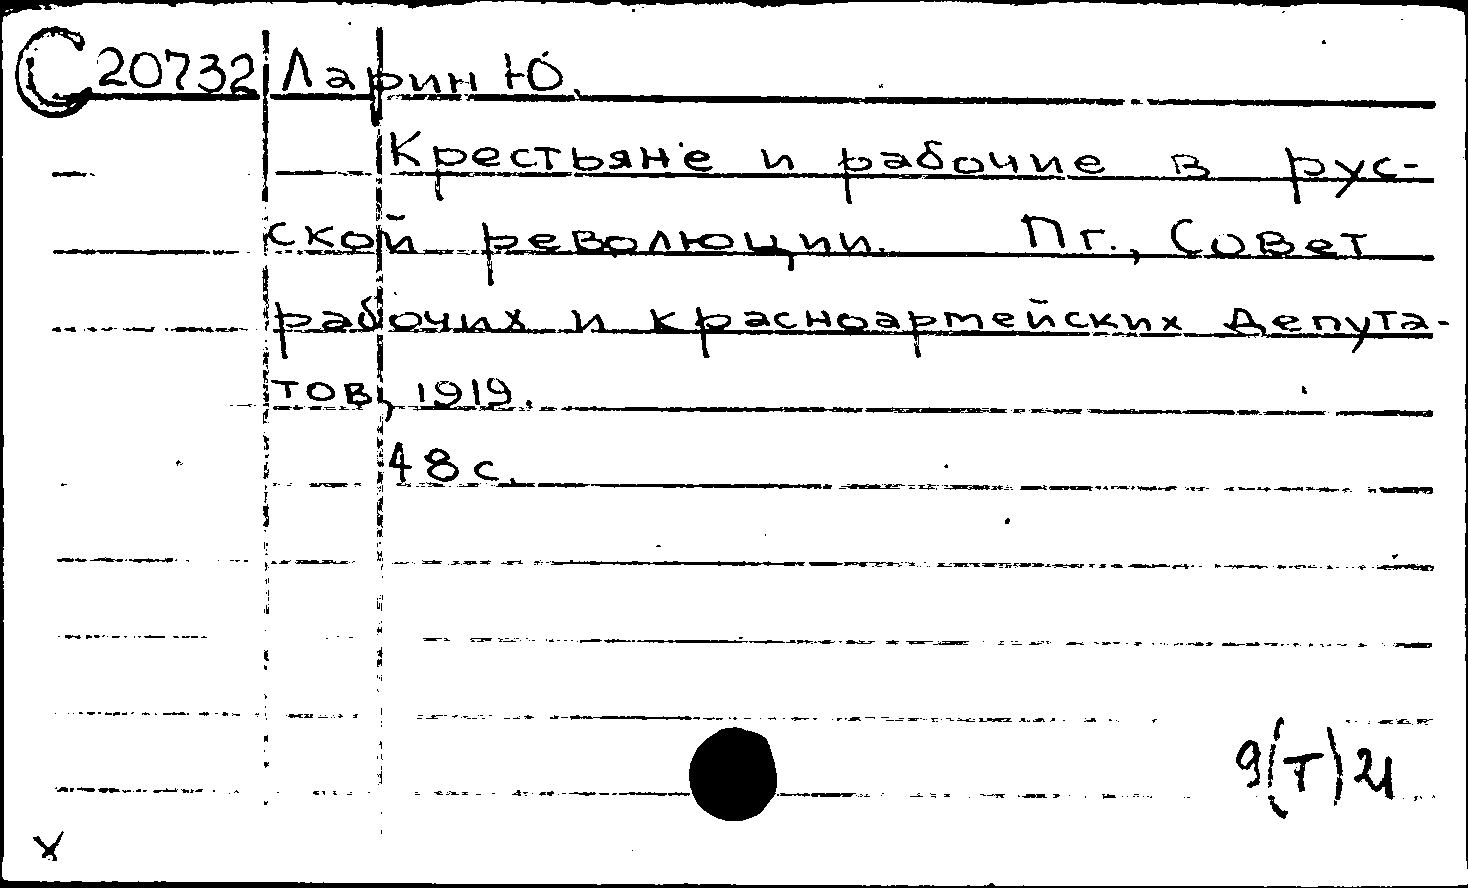 С20732 Ларин Ю.
Крестьяне и рабочие в рус-
ской революции. Пг., Совет
рабочих и красноармейских депута-
тов, 1919.
48 с.
9(Т)21
х